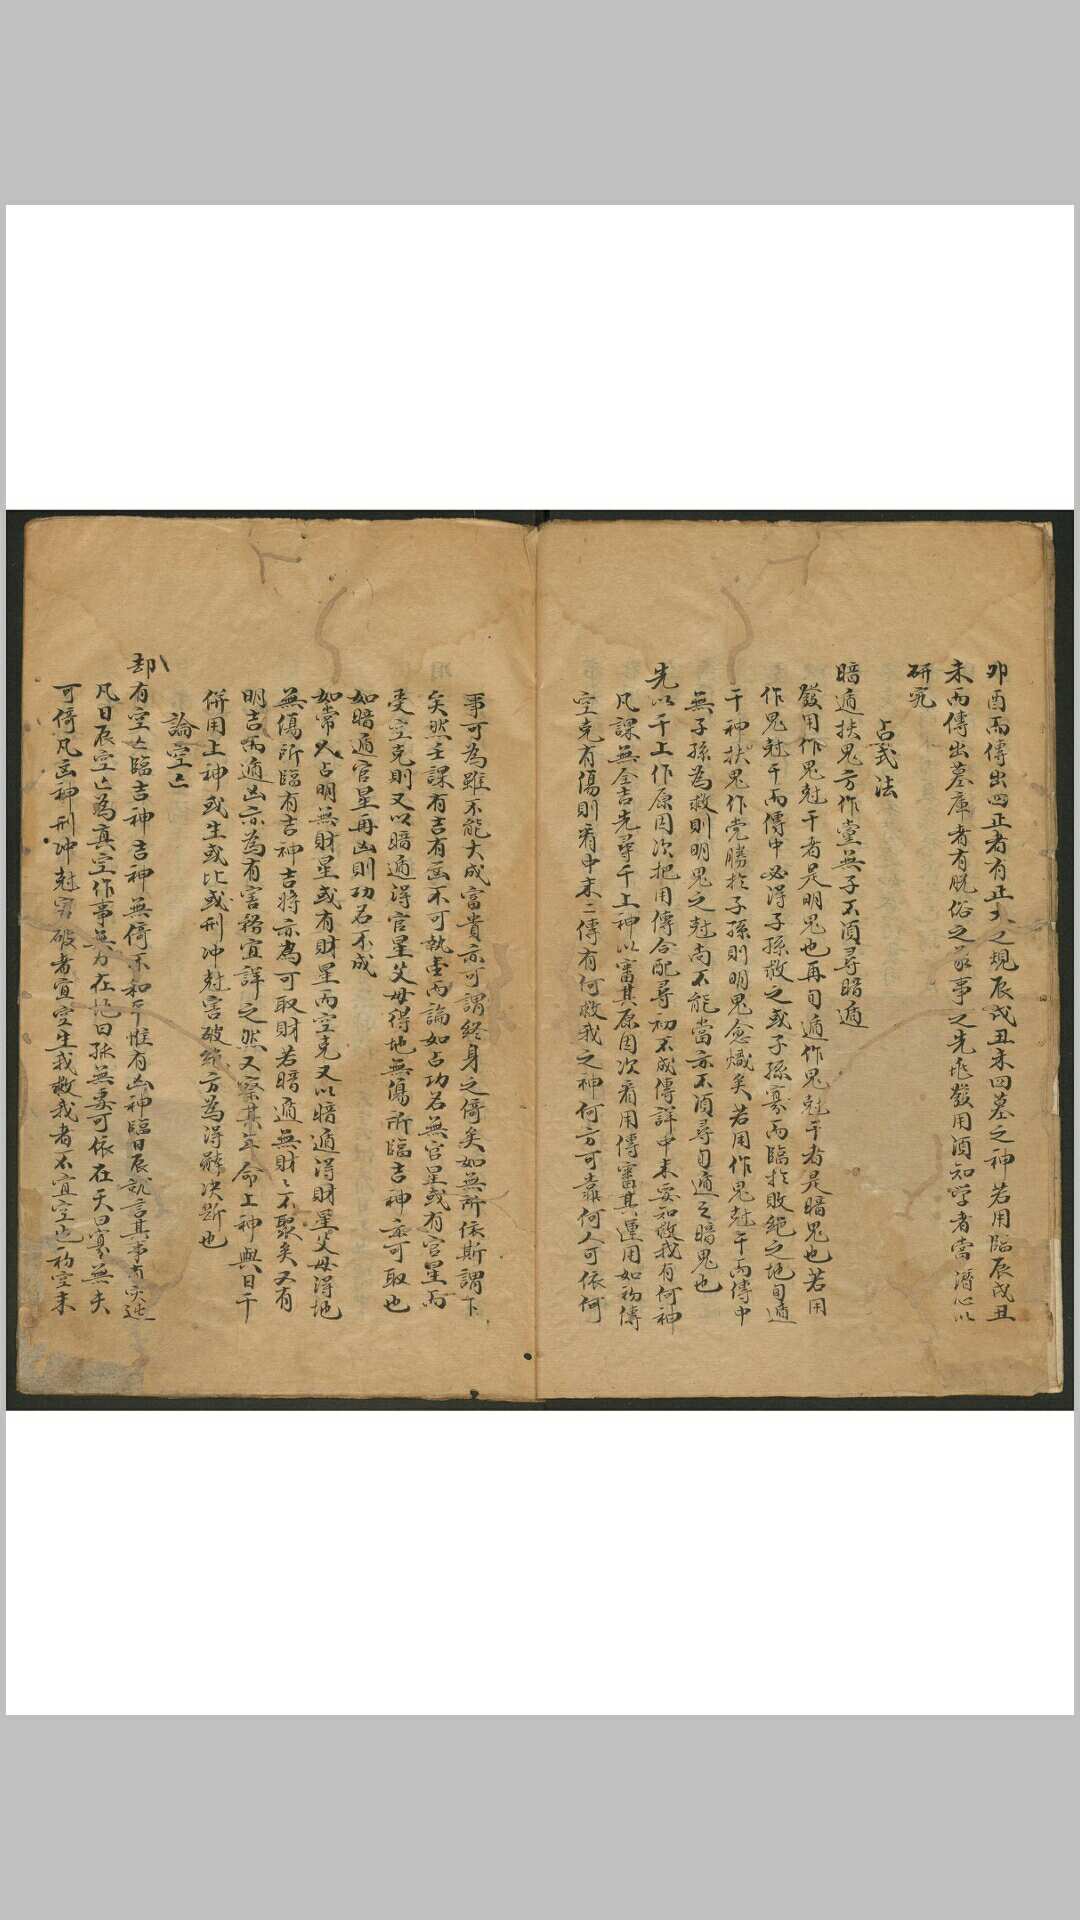 卯酉而傳出四正者有正大之規辰戌丑未四墓之神若用臨辰戌丑
未而傳出墓庫者有脫俗之象事之先兆發用須知学者當潛心以
研究
占式法
暗遁扶鬼方作黨無子不須尋暗遁
發用作鬼尅干者是明鬼也再旬遁作鬼尅干者是暗鬼也若用
作鬼尅干而傳中必得子孫救之或子孫寡而臨扵敗絕之地旬遁
干神扶鬼作党勝扵子孫則明鬼愈熾矣若用作鬼尅干而傳中
無子孫為救則明鬼之尅尚不能當亦不須尋旬遁之暗鬼也
先以干上作原因次把用傳合配尋初不成傳詳中末要知救我有何神
凡課無全吉先尋干上神以審其原因次看用傳審其運用如初傳
空克有傷則看中末二傳有何救我之神何方可靠何人可依何
事可為雖不能大成富貴亦可謂終身之倚矣如無所依斯謂下
矣然壬課有吉有凶不可執壹而論如占功名無官星或有官星而
受空克則又以暗遁得官星父母得地無傷所臨吉神亦可取也
如暗遁官星再凶則功名不成
如常人占明無財星或有財星而空克又以暗遁得財星父母得地
無傷所臨有吉神吉將亦為可取財若暗遁無財〻不聚矣又有
明吉而遁凶亦為有害務宜詳之然又察其年命上神與日干
併用上神或生或比或刑冲尅害破絕方為得觧决断也
論空亡
却有空亡臨吉神吉神無倚不和平惟有凶神臨日辰說言其事有
凡日辰空亡為真空作事無力在地曰孤無委可依在天曰寡無夫
可倚凡凶神刑冲尅害破者宜空生我救我者不宜空也初空末